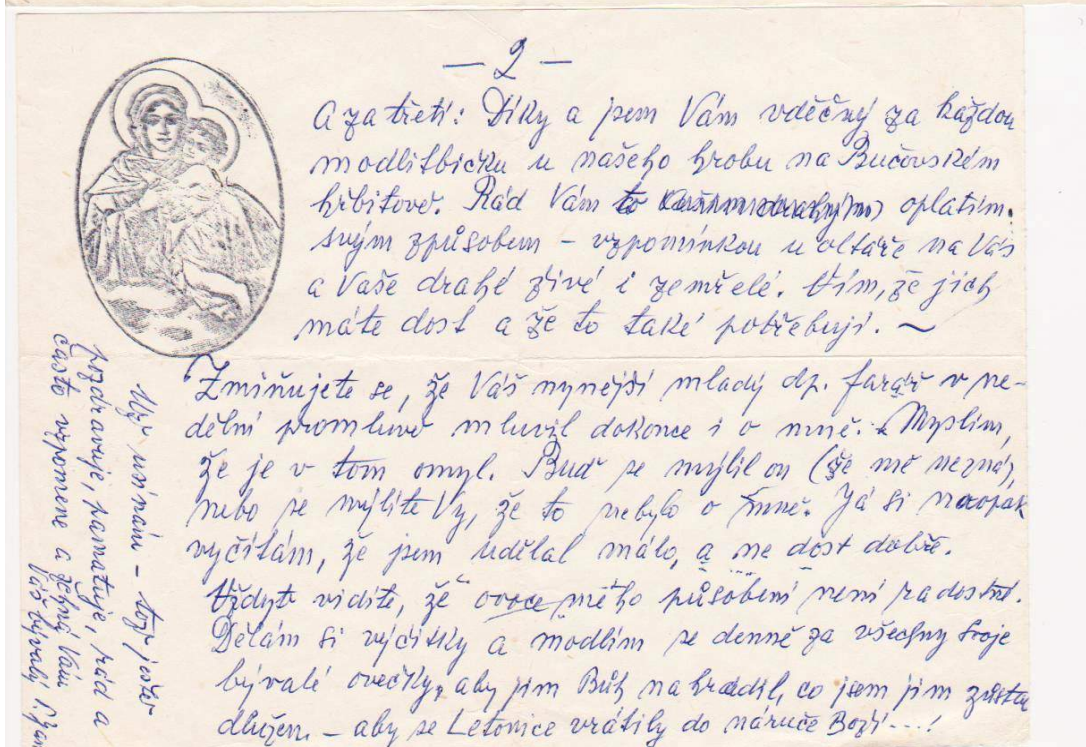 — 2 —
A za třetí: Díky a jsem Vám vděčný za každou
modlitbičku u našeho hrobu na Bučovském
hřbitově. Rád Vám to oplatím
svým způsobem – vzpomínkou u oltáře na Vás
a Vaše drahé živé i zemřelé. Vím, že jich
máte dost a že to také potřebují. –
Zmiňujete se, že Váš nynější mladý dp. farář v ne-
dělní promluvě mluvil dokonce i o mně. Myslím,
že je v tom omyl. Buď se mýlil on (že mě nezná),
nebo se mýlíte Vy, že to nebylo o mně. Já si naopak
vyčítám, že jsem udělal málo, a ne dost dobře.
Vždyť vidíte, že ovoce mého působení není radostné.
Dělám si výčitky a modlím se denně za všechny svoje
bývalé ovečky, aby jim Bůh nahradil, co jsem jim zůstal
dlužen. – aby se Letonice vrátily do náruče Boží ---!
pozdravuje, pamatuje, rád a
často vzpomene a žehná Vám
Váš bývalý